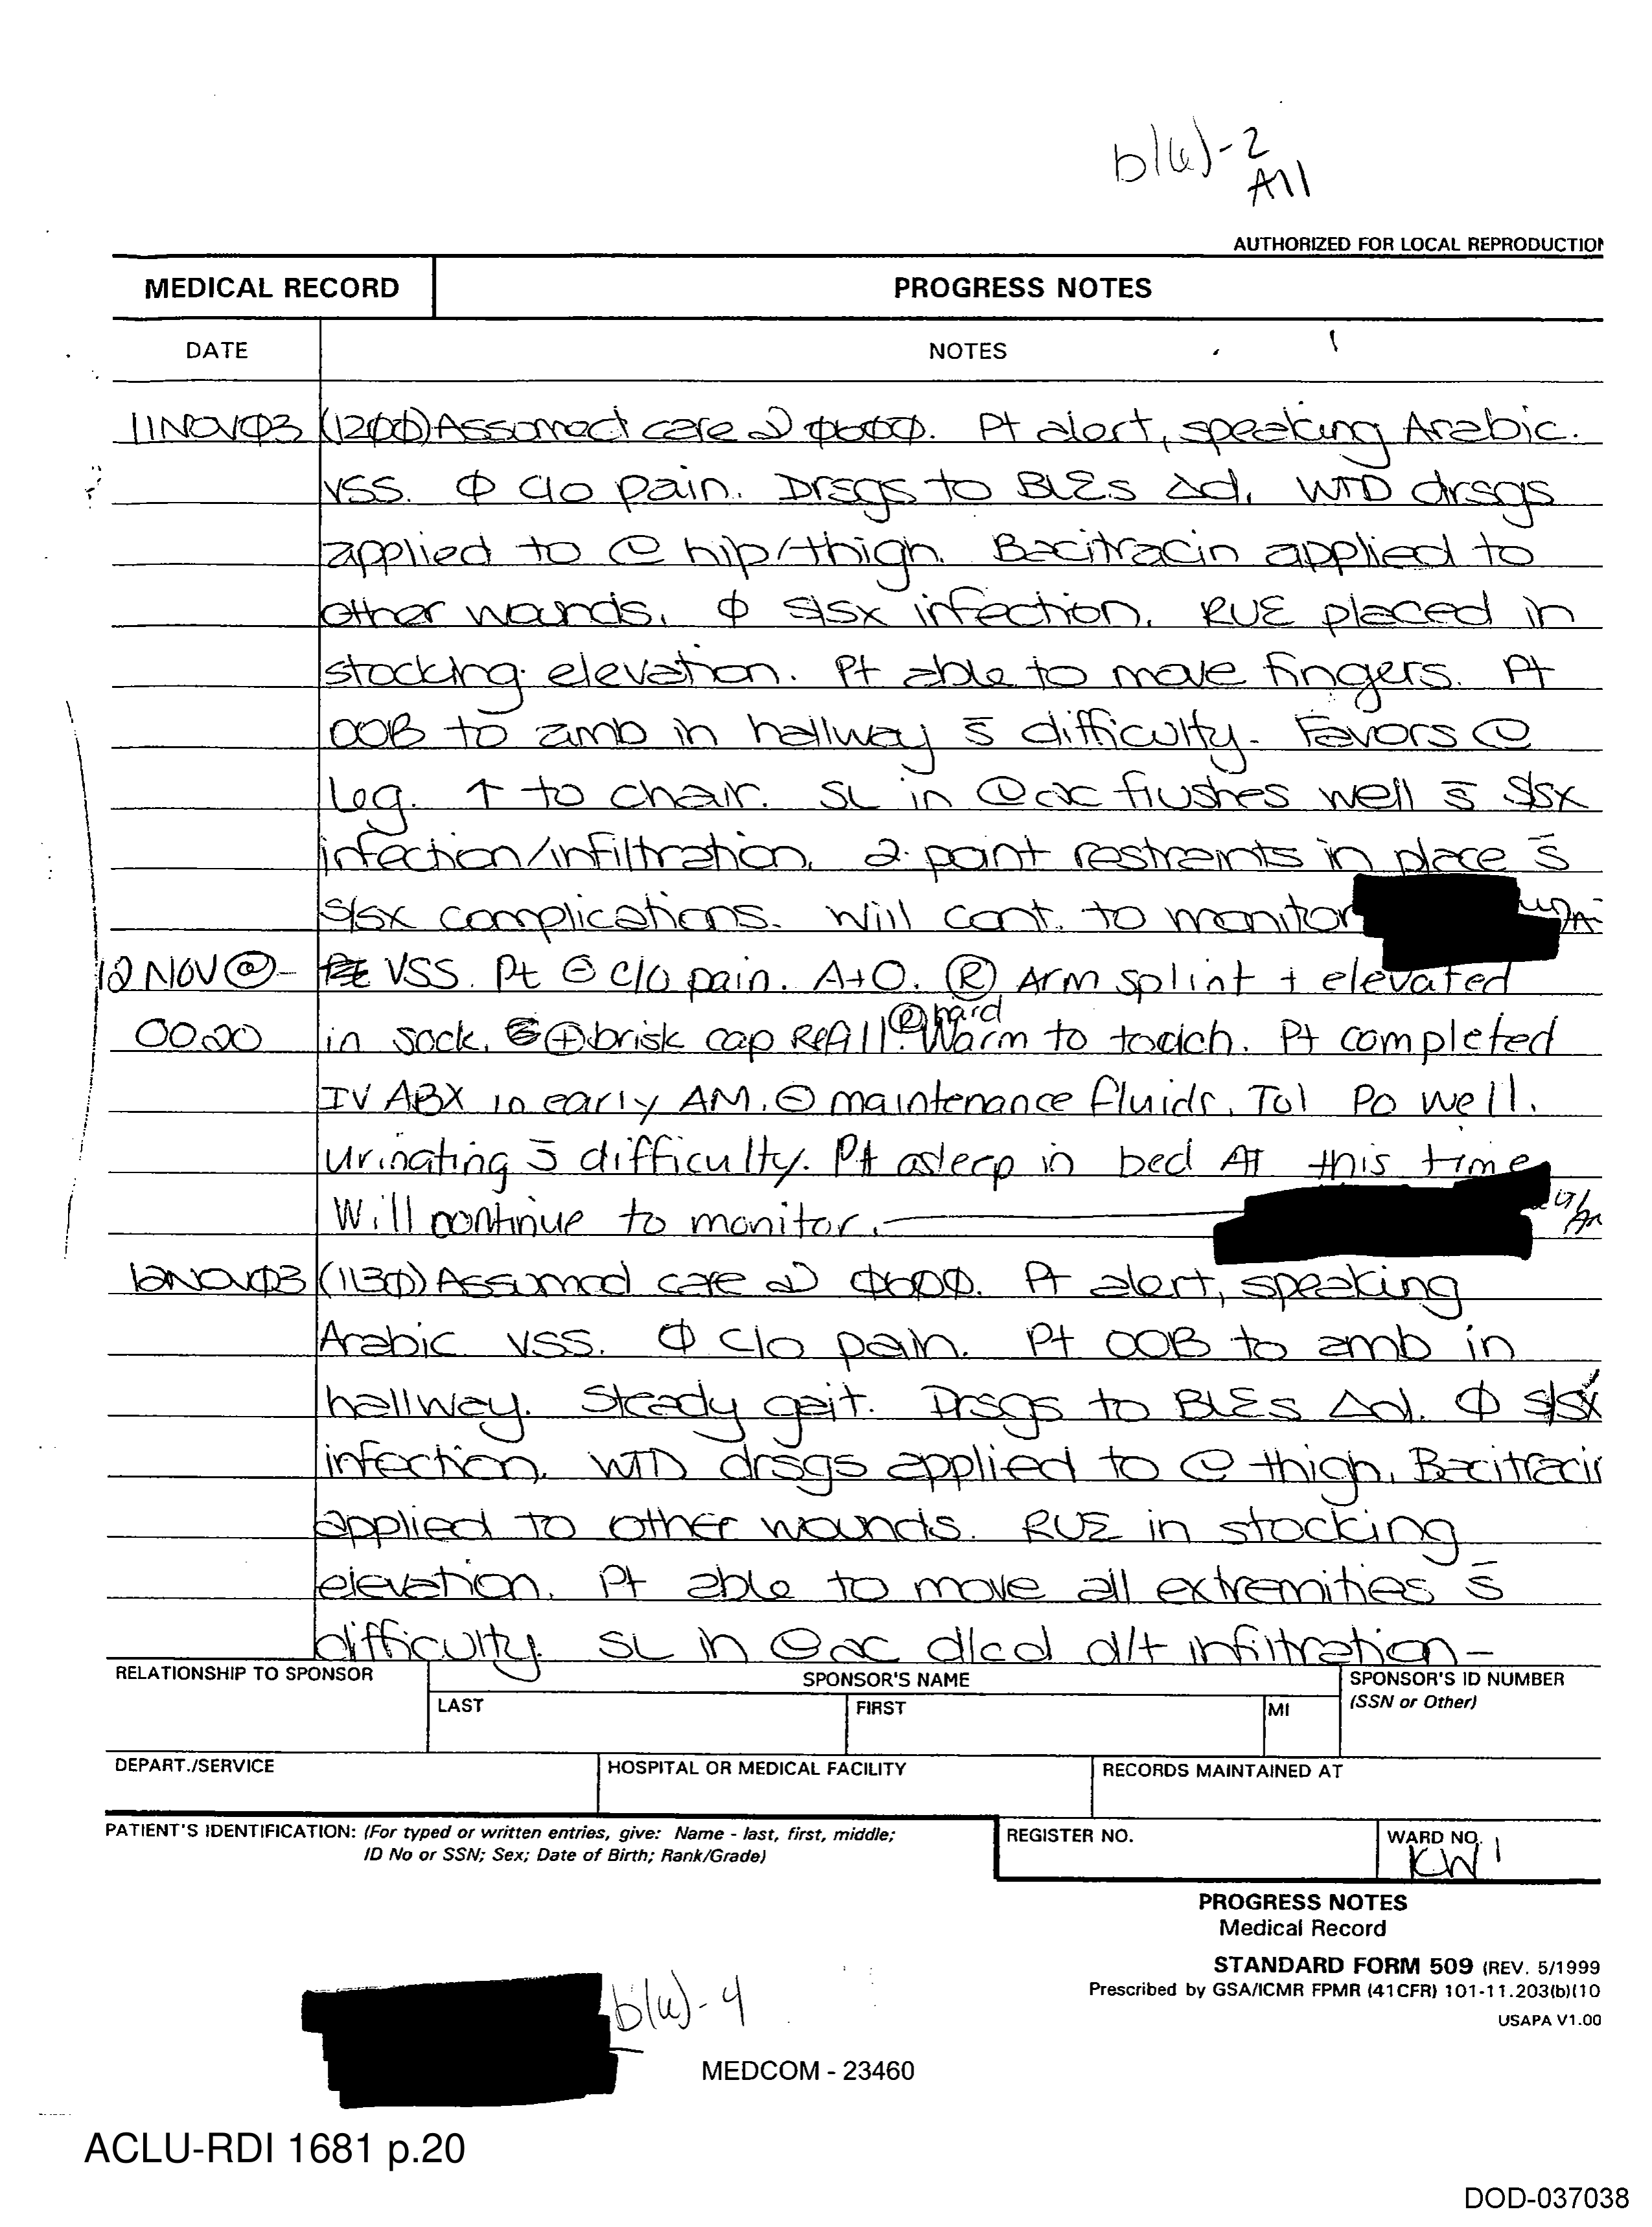 b(6)-2
All
AUTHORIZED FOR LOCAL REPRODUCTION
MEDICAL RECORD PROGRESS NOTES
DATE NOTES
11NOVØ3 (12ØØ) Assumed care @ Ø6ØØ. Pt alert, speaking Arabic.
VSS. Ø c/o pain. Drsgs to BLEs Δd. WTD drsgs
applied to Ⓛ hip/thigh. Bacitracin applied to
other wounds. Ø s/sx infection. RUE placed in
stocking elevation. Pt able to move fingers. Pt
OOB to amb in hallway s̄ difficulty. Favors Ⓛ
leg. ↑ to chair. SL in Ⓛ ac flushes well s̄ s/sx
infection/infiltration. 2 point restraints in place s̄
s/sx complications. Will cont. to monitor
12 NOV @ - VSS. Pt ⊖ c/o pain. A+O. Ⓡ Arm splint + elevated
0020 in sock. ⊕ brisk cap Refill. Ⓡ hand Warm to touch. Pt completed
IV ABX in early AM. ⊖ maintenance fluids. Tol PO well.
Urinating s̄ difficulty. Pt asleep in bed At this time
Will continue to monitor.
12NOVØ3 (113Ø) Assumed care @ Ø6ØØ. Pt alert, speaking
Arabic VSS. Ø c/o pain. Pt OOB to amb in
hallway. Steady gait. Drsgs to BLEs Δd. Ø s/sx
infection. WTD drsgs applied to Ⓛ thigh. Bacitracin
applied to other wounds. RUE in stocking
elevation. Pt able to move all extremities s̄
difficulty. SL in Ⓛ ac d/cd d/t infiltration -
RELATIONSHIP TO SPONSOR SPONSOR'S NAME SPONSOR'S ID NUMBER
LAST FIRST MI (SSN or Other)
DEPART./SERVICE HOSPITAL OR MEDICAL FACILITY RECORDS MAINTAINED AT
PATIENT'S IDENTIFICATION: (For typed or written entries, give: Name - last, first, middle; REGISTER NO. WARD NO.
ID No or SSN; Sex; Date of Birth; Rank/Grade) ICW 1
PROGRESS NOTES
Medical Record
STANDARD FORM 509 (REV. 5/1999
Prescribed by GSA/ICMR FPMR (41CFR) 101-11.203(b)(10
USAPA V1.00
b(6)-4
MEDCOM - 23460
ACLU-RDI 1681 p.20
DOD-037038